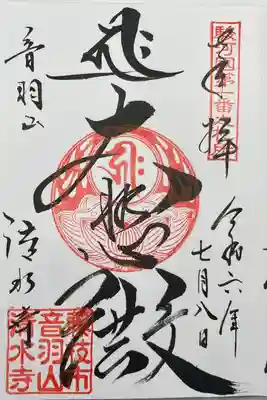 駿河国第一番札所
奉拝
令和六年
七月八日
大悲殿
音羽山
清水寺
藤枝市
音羽山
清水寺